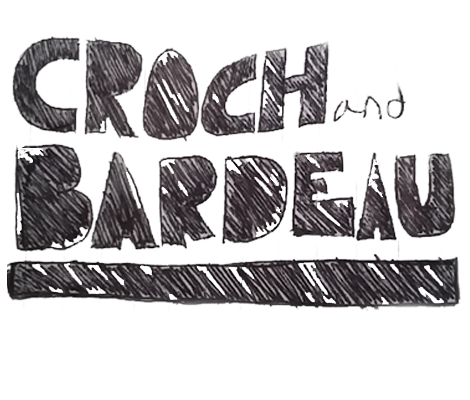 CROCH and
BARDEAU